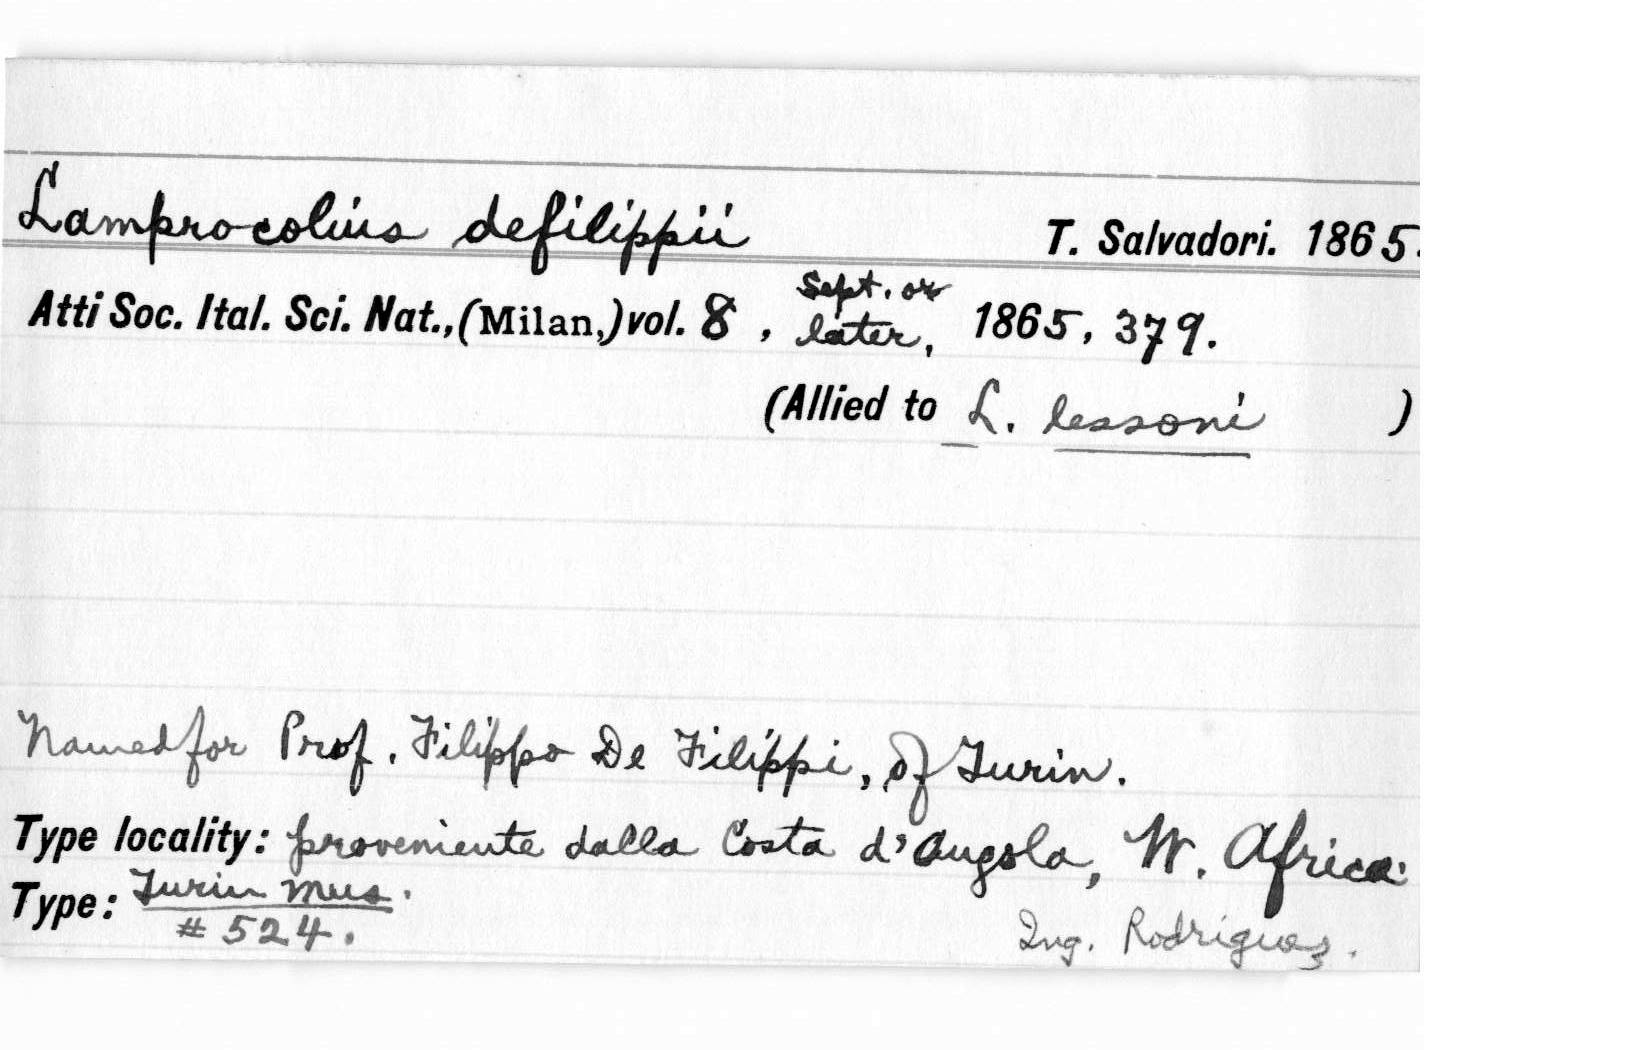 Lamprocolius defilippii T. Salvadori. 1865.
Atti Soc. Ital. Sci. Nat., (Milan,) vol. 8, Sept. or later, 1865, 379.
(Allied to L. lessoni )
Named for Prof. Filippo De Filippi, of Turin.
Type locality: proveniente dalla Costa d'Angola, W. Africa.
Type: Turin Mus.
# 524.
Ing. Rodriguez.